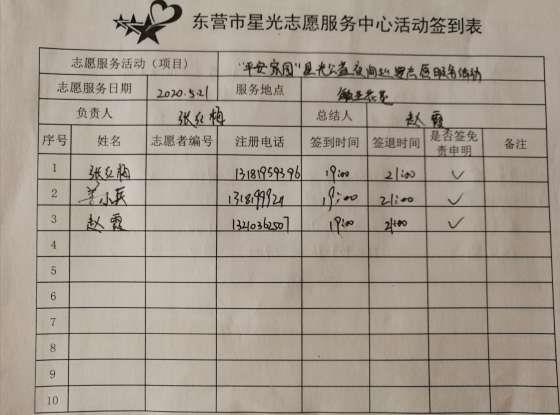 东营市星光志愿服务中心活动签到表
志愿服务活动（项目） “平安家园”星光公益夜间巡逻志愿服务活动
志愿服务日期 2020.5.21 服务地点
负责人 张红梅 总结人 赵霞
序号 姓名 志愿者编号 注册电话 签到时间 签退时间 是否签免责申明 备注
1 张红梅 13181959396 19:00 21:00 ✓
2 19:00 21:00 ✓
3 赵霞 13210362507 19:00 21:00 ✓
4
5
6
7
8
9
10